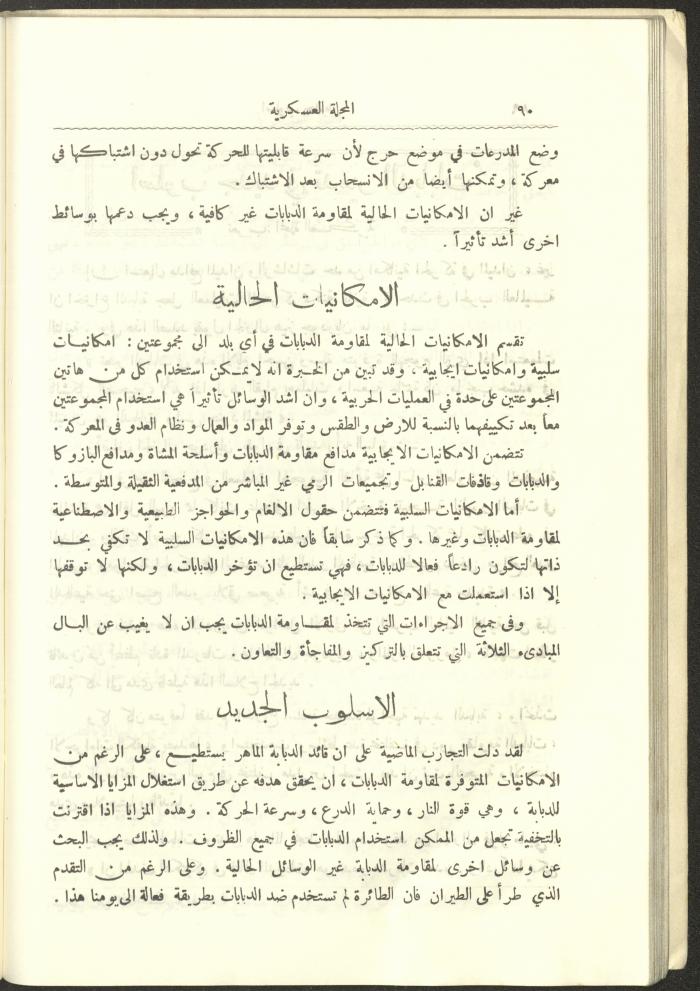 ٩٠
المجلة العسكرية
وضع المدرعات في موضع حرج لأن سرعة قابليتها للحركة تحول دون اشتباكها في
معركة ، وتمكنها أيضا من الانسحاب بعد الاشتباك .
غير ان الامكانيات الحالية لمقاومة الدبابات غير كافية ، ويجب دعمها بوسائط
اخرى أشد تأثيراً .
الامكانيات الحالية
تقسم الامكانيات الحالية لمقاومة الدبابات في أي بلد الى مجموعتين : امكانيات
سلبية وامكانيات ايجابية . وقد تبين من الخبرة انه لا يمكن استخدام كل من هاتين
المجموعتين على حدة في العمليات الحربية ، وان اشد الوسائل تأثيراً هي استخدام المجموعتين
معاً بعد تكييفهما بالنسبة للارض والطقس وتوفر المواد والعمال ونظام العدو في المعركة .
تتضمن الامكانيات الايجابية مدافع مقاومة الدبابات وأسلحة المشاة ومدافع البازوكا
والدبابات وقاذفات القنابل وتجميعات الرمي غير المباشر من المدفعية الثقيلة والمتوسطة .
أما الامكانيات السلبية فتتضمن حقول الالغام والحواجز الطبيعية والاصطناعية
لمقاومة الدبابات وغيرها . وكما ذكر سابقاً فان هذه الامكانيات السلبية لا تكفي بحد
ذاتها لتكون رادعاً فعالا للدبابات ، فهي تستطيع ان تؤخر الدبابات ، ولكنها لا توقفها
إلا اذا استعملت مع الامكانيات الايجابية .
وفى جميع الاجراءات التي تتخذ لمقاومة الدبابات يجب ان لا يغيب عن البال
المبادىء الثلاثة التي تتعلق بالتركيز والمفاجأة والتعاون .
الاسلوب الجديد
لقد دلت التجارب الماضية على ان قائد الدبابة الماهر يستطيع ، على الرغم من
الامكانيات المتوفرة لمقاومة الدبابات ، ان يحقق هدفه عن طريق استغلال المزايا الاساسية
للدبابة ، وهي قوة النار ، وحماية الدرع ، وسرعة الحركة . وهذه المزايا اذا اقترنت
بالتخفية تجعل من الممكن استخدام الدبابات في جميع الظروف . ولذلك يجب البحث
عن وسائل اخرى لمقاومة الدبابة غير الوسائل الحالية . وعلى الرغم من التقدم
الذي طرأ على الطيران فان الطائرة لم تستخدم ضد الدبابات بطريقة فعالة الى يومنا هذا .